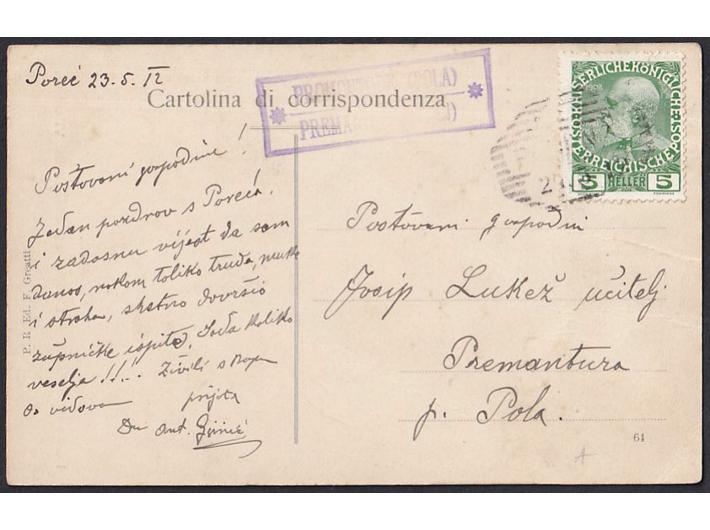 Poreč 23.5.12
PROMONTORE (POLA)
Cartolina di corrispondenza
Poštovani gospodine!
Jedan pozdrav s Poreča
i zadosnu vijest da sam
danas, nakon toliko truda, muke
i straha, sretno dovršio
župničke ispite. Sada koliko
veselja!!!. Živili s Bogom
do viđova
prijta
Dr Ant.
P. R. Ed. F. Greatti
KAISERLICHE KÖNIGLICHE
ÖSTERREICHISCHE POST
5 HELLER 5
Poštovani gospodin
Josip Lukež učitelj
Premantura
p. Pola.
61